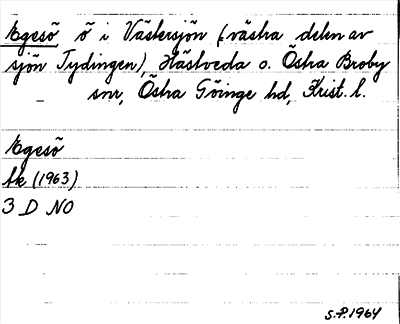 Egesö ö i Västersjön (västra delen av
sjön Tydingen), Hästveda o. Östra Broby
snr, Östra Göinge hd, Krist. l.
Egesö
tk (1963)
3 D NO
S.P. 1964